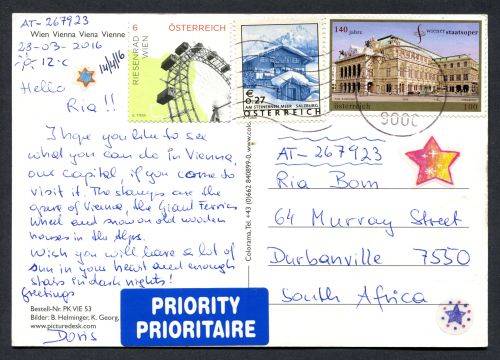 AT-267923
Wien Vienna Viena Vienne
23-03-2016
12°C
14/4/16
Hello
Ria!!
I hope you like to see
what you can do in Vienna,
our capital, if you come do
visit it. The stamps are the
opera of Vienna, the Giant Ferries
wheel and snow on old wooden
houses in the Alps.
Wich you will have a lot of
sun in your heart and enough
stars in dark nights!
greetings
Bestell-Nr. PK VIE 53
Bilder: B. Helminger, K. Georg,
www.picturedesk.com
Doris
PRIORITY
PRIORITAIRE
Colorama, Tel. +43 (0)662 840899-0, www.colo
RIESENRAD
WIEN
6
ÖSTERREICH
€
0.27
AM STEINERNEN MEER SALZBURG
ÖSTERREICH
140 jahre
wiener staatsoper
österreich
100
AT-267923
Ria Bom
64 Murray Street
Durbanville 7550
South Africa